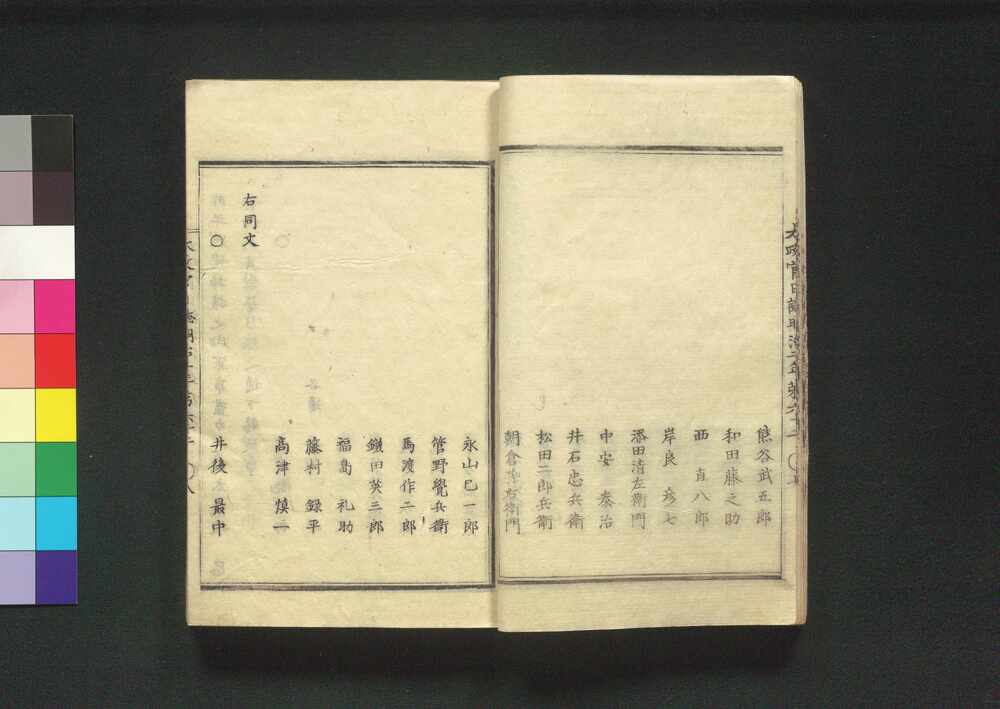 太政官日誌明治二年第六十二
熊谷武五郎
和田藤之助
西直八郎
岸良彦七
添田清左衛門
中安泰治
井石忠兵衛
松田二郎兵衛
朝倉右衛門
永山巳一郎
管野覺兵衛
馬渡作二郎
鐵田英三郎
福島礼助
藤村録平
高津慎一
右同文
○井後最中